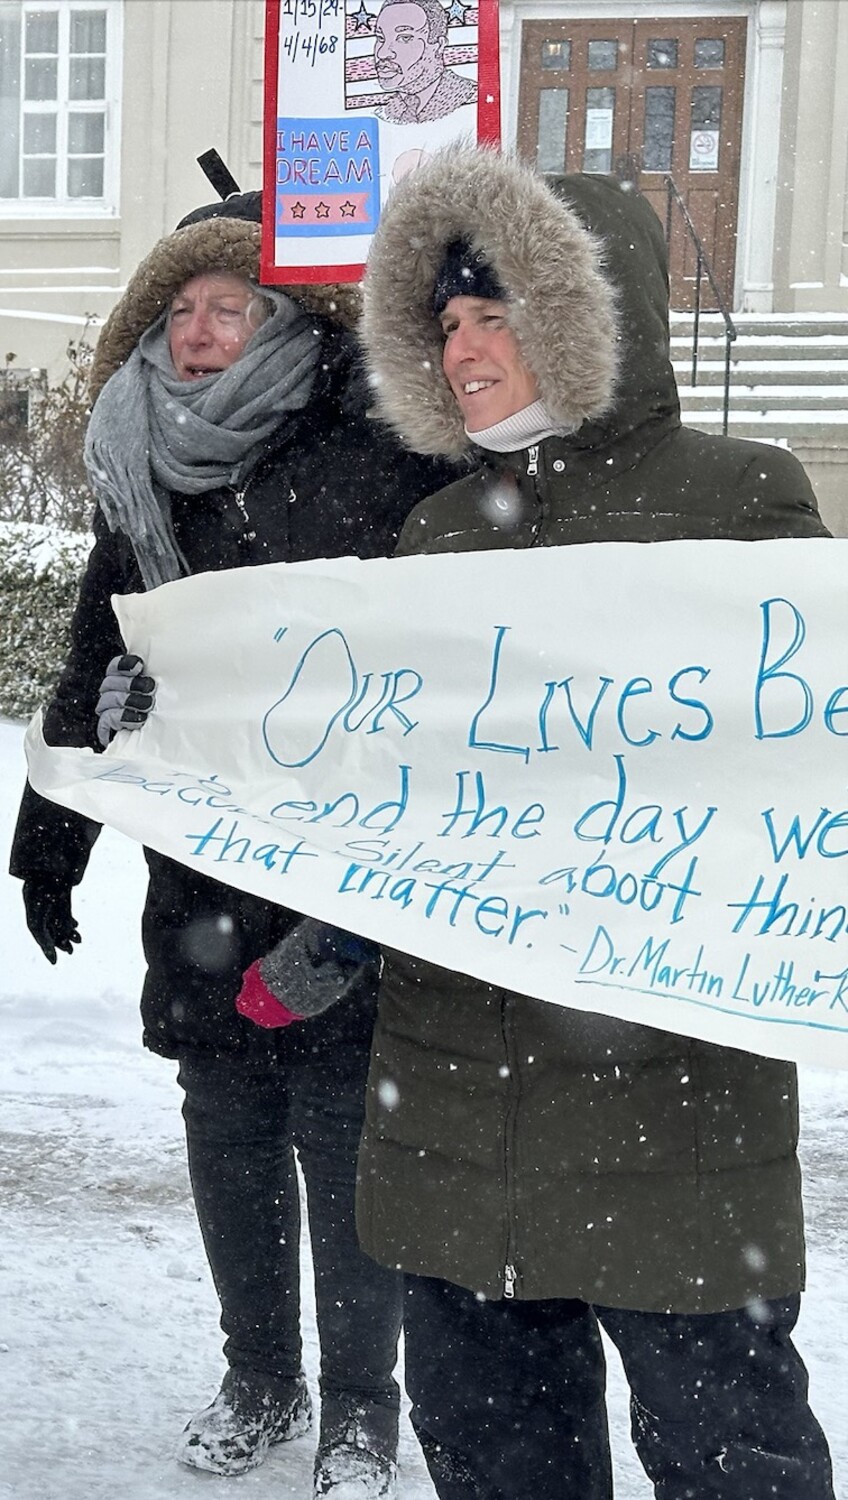 1/15/29-
4/4/68
I HAVE A
DREAM
"OUR LIVES Be
end the day we
Silent about thin
that matter."
-Dr. Martin Luther K